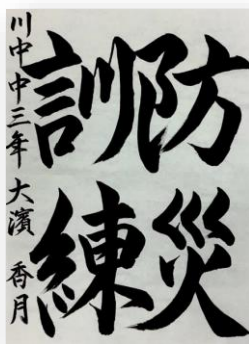 防災
訓練
川中中三年 大濱 香月